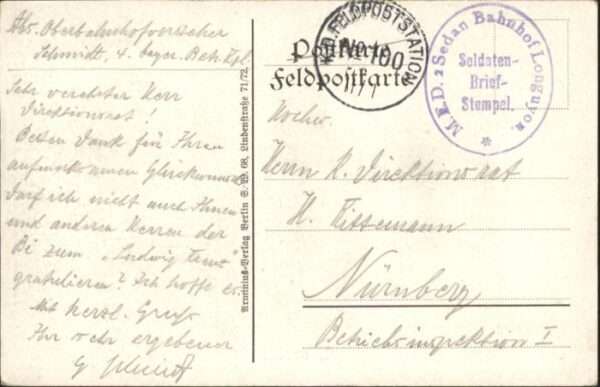 Abs. Oberbahnhofvorsteher
Schmidt, 4. bayer. Beh. Kpl.
Sehr verehrter Herr
Direktionsrat!
Besten Dank für Ihren
aufmerksamen Glückwunsch
Darf ich nicht auch Ihnen
und anderen Herren der
Bi zum „Ludwig
gratulieren? Ich hoffe es.
Mit herzl. Gruß
Ihr sehr ergebener
Schmidt
Arminius-Verlag Berlin S. W. 68, Lindenstraße 71/72.
Postkarte
Feldpostkarte
FELDPOSTSTATION
No 100
M.E.D. 2 Sedan Bahnhof Longuyon.
Soldaten-
Brief-
Stempel.
Hochw.
Herrn K. Direktionsrat
H.
Nürnberg
Betriebsinspektion I